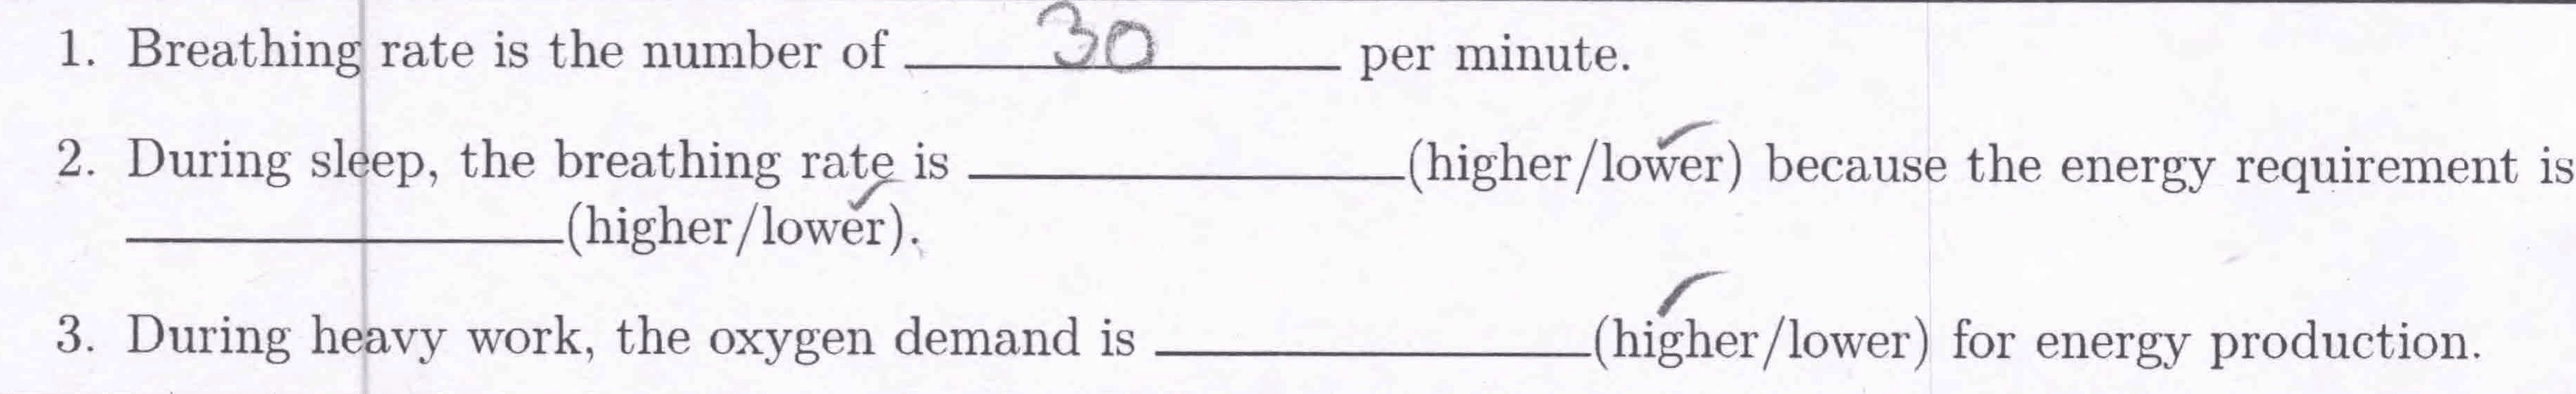 1. Breathing rate is the number of 30 per minute.
2. During sleep, the breathing rate is ____________(higher/lower) because the energy requirement is
____________(higher/lower).
3. During heavy work, the oxygen demand is ____________(higher/lower) for energy production.